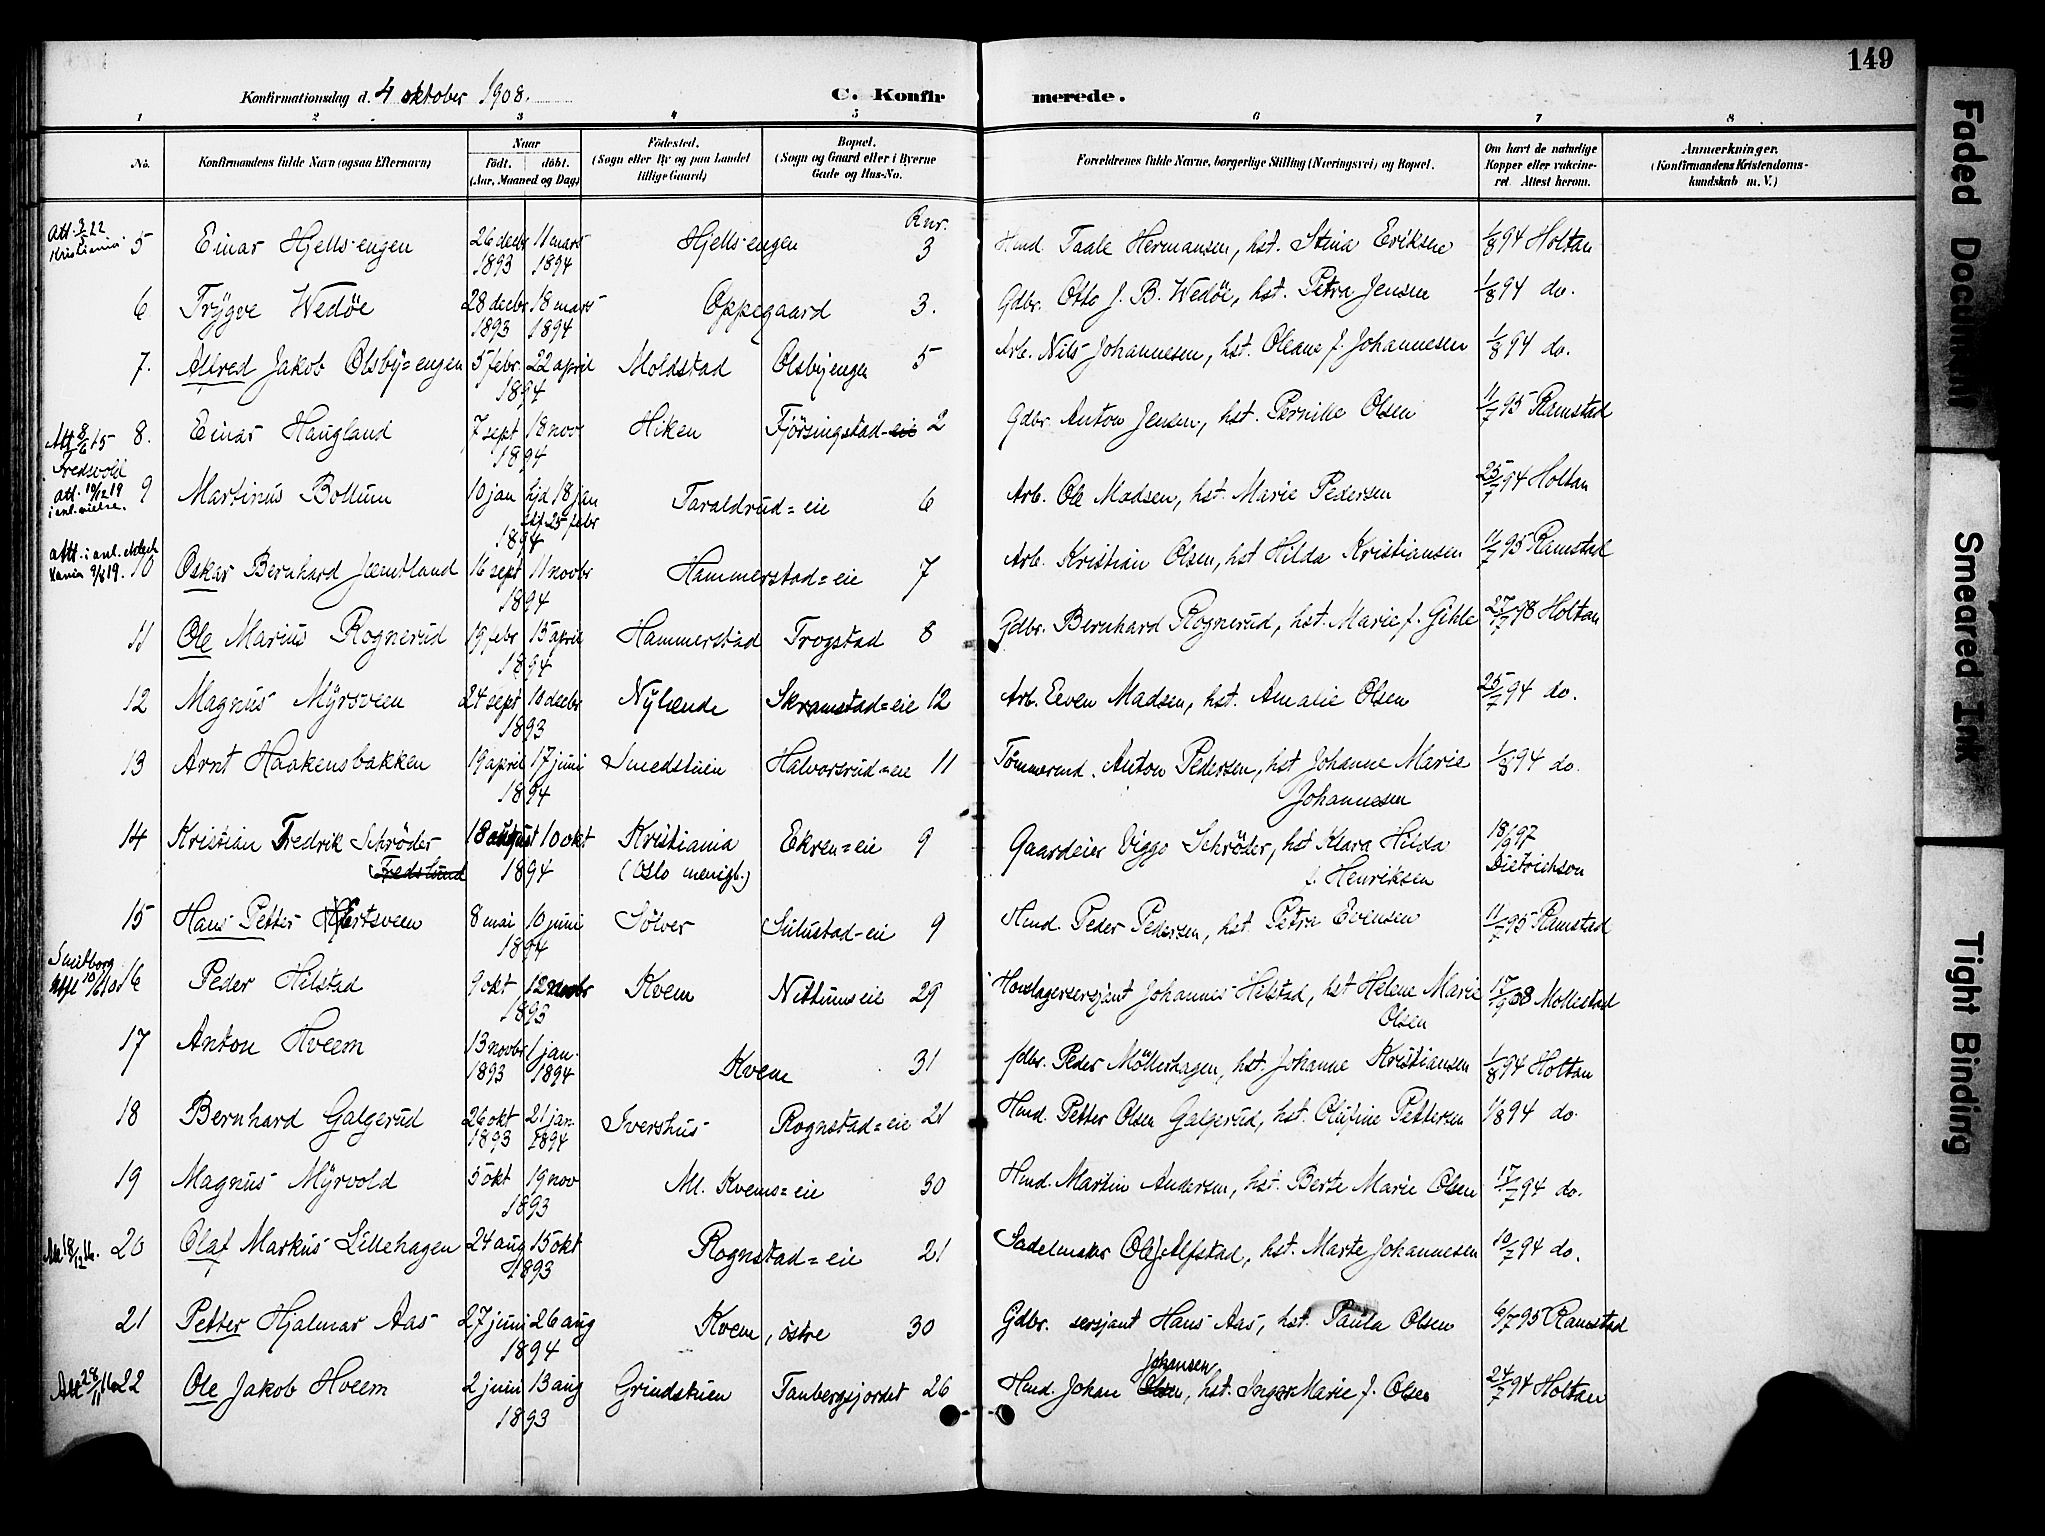 149
Konfirmationsdag d. 4 oktober 1908.
C. Konfirmerede.
1 2 3 4 5 6 7 8
No. Konfirmandens fulde Navn (ogsaa Efternavn) Naar født. døbt. (Aar, Maaned og Dag) Fødested. (Sogn eller By og paa Landet tillige Gaard) Bopæl. (Sogn og Gaard eller i Byerne Gade og Hus-No. Forældrenes fulde Navne, borgerlige Stilling (Næringsvei) og Bopæl. Om havt de naturlige Kopper eller vaccineret. Attest herom. Anmærkninger. (Konfirmandens Kristendomskundskab m. V.)
Rnr.
5 Einar Hjellsengen 26 decbr 1893 11 mars 1894 Hjellsengen 3 Hmd. Taale Hermansen, hst. Stina Eriksen 1/8 94 Holtan
6 Trygve Wedøe 28 decbr 1893 18 mars 1894 Oppegaard 3. Gdbr. Otto J. B. Wedøe, hst. Petra Jensen 1/8 94 do.
7. Alfred Jakob Olsby=engen 5 febr. 22 april 1894 Moldstad Olsbyengen 5 Arb. Nils Johannesen, hst. Oleane f. Johannesen 1/8 94 do.
8. Einar Haugland 7 sept 18 nov 1894 Hiken Fjørsingstad-eie 2 Gdbr. Anton Jensen, hst. Pernille Olsen 11/7 95 Ramstad
9 Martinus Bollum 10 jan hjd 18 jan 25 febr 1894 Taraldrud=eie 6 Arb. Ole Madsen, hst. Marie Pedersen 25/7 94 Holtan
10 Oskar Bernhard Jæmtland 16 sept 11 novbr 1894 Hammerstad=eie 7 Arb. Kristian Olsen, hst Hilda Kristiansen 11/7 95 Ramstad
11 Ole Marius Rognerud 19 febr 15 april 1894 Hammerstad Trogstad 8 Gdbr. Bernhard Rognerud, hst. Marie f. Gihle 27/7 98 Holtan
12 Magnus Myrsveen 24 sept 10 decbr 1893 Nylænde Skramstad=eie 12 Arb. Even Madsen, hst. Amalie Olsen 25/7 94 do.
13 Arnt Haakensbakken 19 april 17 juni 1894 Smedstuen Halvorsrud=eie 11 Tømmermd. Anton Pedersen, hst Johanne Marie Johannesen 1/8 94 do.
14 Kristian Fredrik Schrøder 18 august 10 okt 1894 Kristiania (Oslo menigh.) Ekren=eie 9 Gaardeier Viggo Schrøder, hst Klara Hilda f. Henriksen 18/9 97 Dietrichson
(Fredslund
15 Hans Petter Hjertsveen 8 mai 10 juni 1894 Sølver Sulustad-eie 9 Hmd. Peder Pedersen, hst. Petra Evensen 11/7 95 Ramstad
16 Peder Hilstad 9 okt 12 novbr 1893 Kvem Nittumseie 29 Hovslagersersjant Johannes Helstad, hst Helene Marie Olsen 17/9 08 Mollestad
17 Anton Hveem 13 novbr 1893 1 jan. 1894 Kvem 31 fdbr. Peder Möllerhagen, hst. Johanne Kristiansen 1/8 94 Holtan
18 Bernhard Galgerud 26 okt 1893 21 jan. 1894 Ivershus Rognstad=eie 21 Hmd. Petter Olsen Galgerud, hst. Olufine Pettersen 1/8 94 do
19 Magnus Myrvold 5 okt 19 nov 1893 Ml. Kvems=eie 30 Hmd. Martin Andersen, hst. Berte Marie Olsen 17/7 94 do.
20 Olaf Markus Lillehagen 24 aug 15 okt 1893 Rognstad=eie 21 Sadelmaker Ole J. Alfstad, hst. Marte Johannesen 10/7 94 do.
21 Petter Hjalmar Aas 27 juni 26 aug 1894 Kvem, østre 30 Gdbr. sersjant Hans Aas, hst. Paula Olsen 6/7 95 Ramstad
22 Ole Jakob Hveem 2 juni 13 aug 1893 Grindstuen Taubergsjordet 26 Hmd. Johan Olsen Johansen, hst. Inger Marie f. Olsen 24/7 94 Holtan
Faded Document
Smeared Ink
Tight Binding